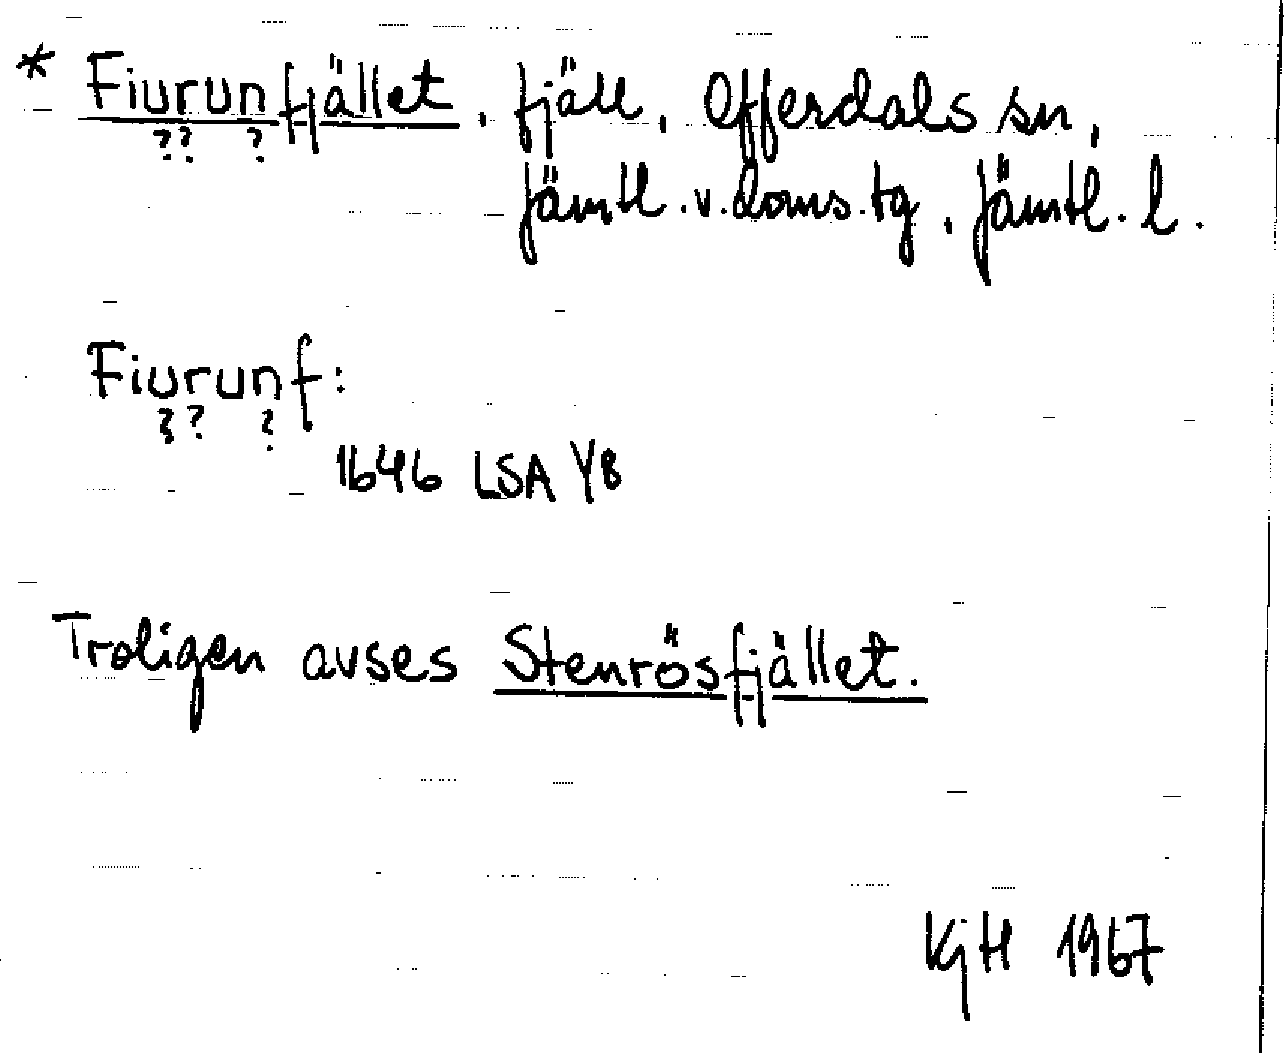 * Fiurunfjället, fjäll, Offerdals sn,
?? ?
Jämtl. v. doms. tg, Jämtl. l.
Fiurunf:
?? ?
1646 LSA Y8
Troligen avses Stenrösfjället.
KjH 1967